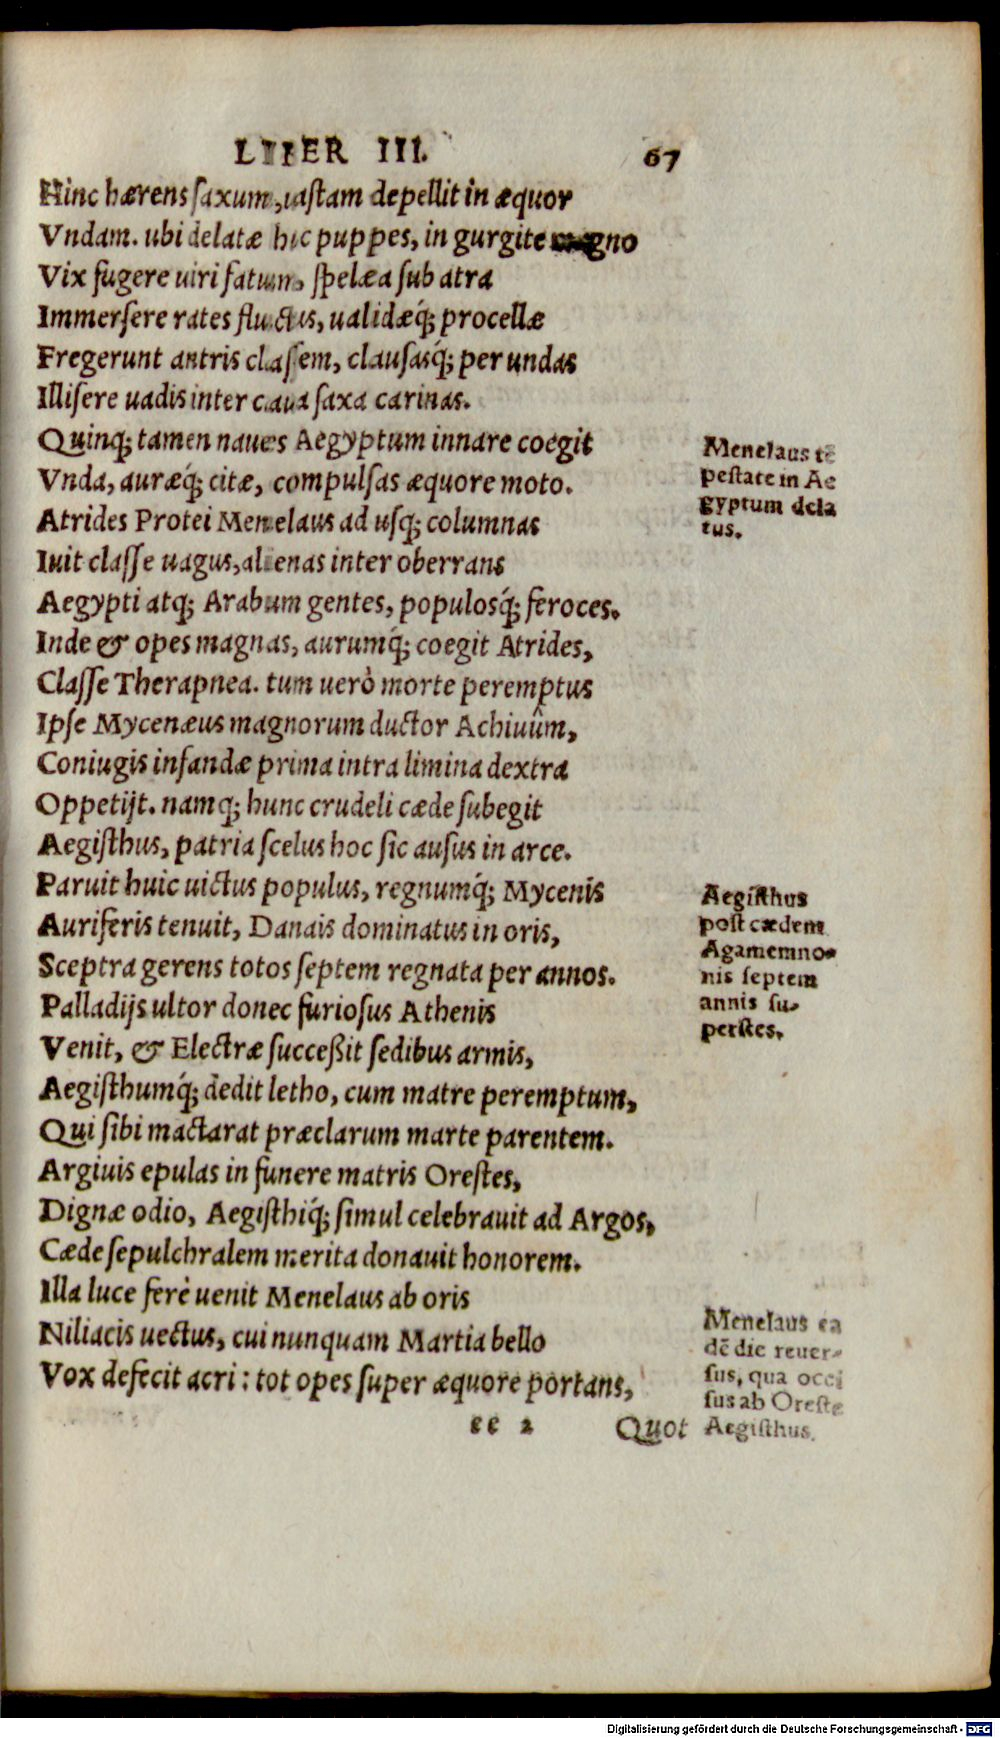 LIBER III. 67
Hinc hærens saxum, uastam depellit in æquor
Vndam. ubi delatæ hic puppes, in gurgite magno
Vix fugere uiri fatum, spelæa sub atra
Immersere rates fluctus, ualidæq́; procellæ
Fregerunt antris classem, clausasq́; per undas
Illisere uadis inter caua saxa carinas.
Quinq; tamen naues Aegyptum innare coëgit
Vnda, auræq́; citæ, compulsas æquore moto.
Atrides Protei Menelaus ad usq; columnas
Iuit classe uagus, alienas inter oberrans
Aegypti atq; Arabum gentes, populosq́; feroces.
Inde & opes magnas, aurumq́; coegit Atrides,
Classe Therapnea. tum uerò morte peremptus
Ipse Mycenæus magnorum ductor Achiuûm,
Coniugis infandæ prima intra limina dextra
Oppetijt. namq; hunc crudeli cæde subegit
Aegisthus, patria scelus hoc sic ausus in arce.
Paruit huic uictus populus, regnumq́; Mycenis
Auriferis tenuit, Danais dominatus in oris,
Sceptra gerens totos septem regnata per annos.
Palladijs ultor donec furiosus Athenis
Venit, & Electræ succeßit sedibus armis,
Aegisthumq́; dedit letho, cum matre peremptum,
Qui sibi mactarat præclarum marte parentem.
Argiuis epulas in funere matris Orestes,
Dignæ odio, Aegisthiq́; simul celebrauit ad Argos,
Cæde sepulchralem merita donauit honorem.
Illa luce ferè uenit Menelaus ab oris
Niliacis uectus, cui nunquam Martia bello
Vox defecit acri: tot opes super æquore portans,
ee 2 Quot
Menelaus tē
pestate in Ae
gyptum dela
tus.
Aegisthus
post cædem
Agamemno-
nis septem
annis su-
perstes.
Menelaus ea
dē die reuer-
sus, qua occi
sus ab Oreste
Aegisthus.
Digitalisierung gefördert durch die Deutsche Forschungsgemeinschaft - DFG